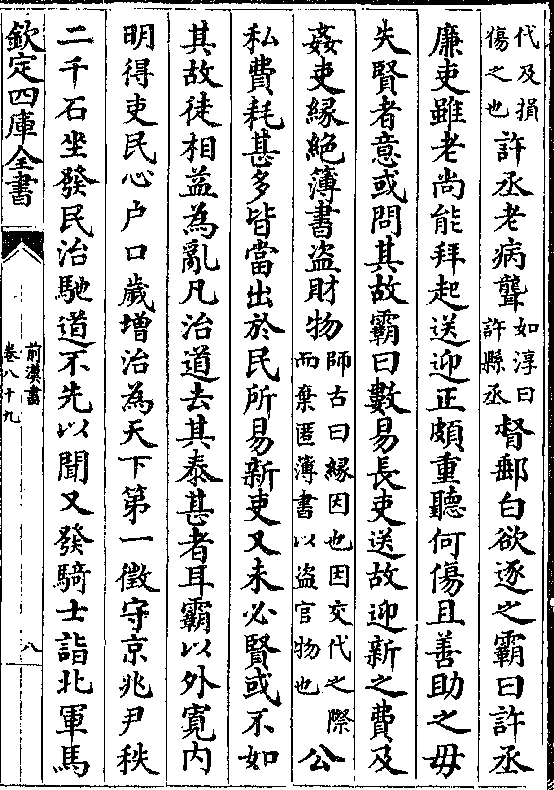 代及損
傷之也
許丞老病聾
如淳曰
許縣丞
督郵白欲逐之霸曰許丞
廉吏雖老尚能拜起送迎正頗重聽何傷且善助之毋
失賢者意或問其故霸曰數易長吏送故迎新之費及
姦吏縁絶簿書盗財物
師古曰縁因也因交代之際
而棄匿簿書以盗官物也
公
私費耗甚多皆當出於民所易新吏又未必賢或不如
其故徒相益為亂凡治道去其泰甚者耳霸以外寛内
明得吏民心户口歲增治為天下第一徵守京兆尹秩
二千石坐發民治馳道不先以聞又發騎士詣北軍馬
欽定四庫全書
前漢書
卷八十九
八